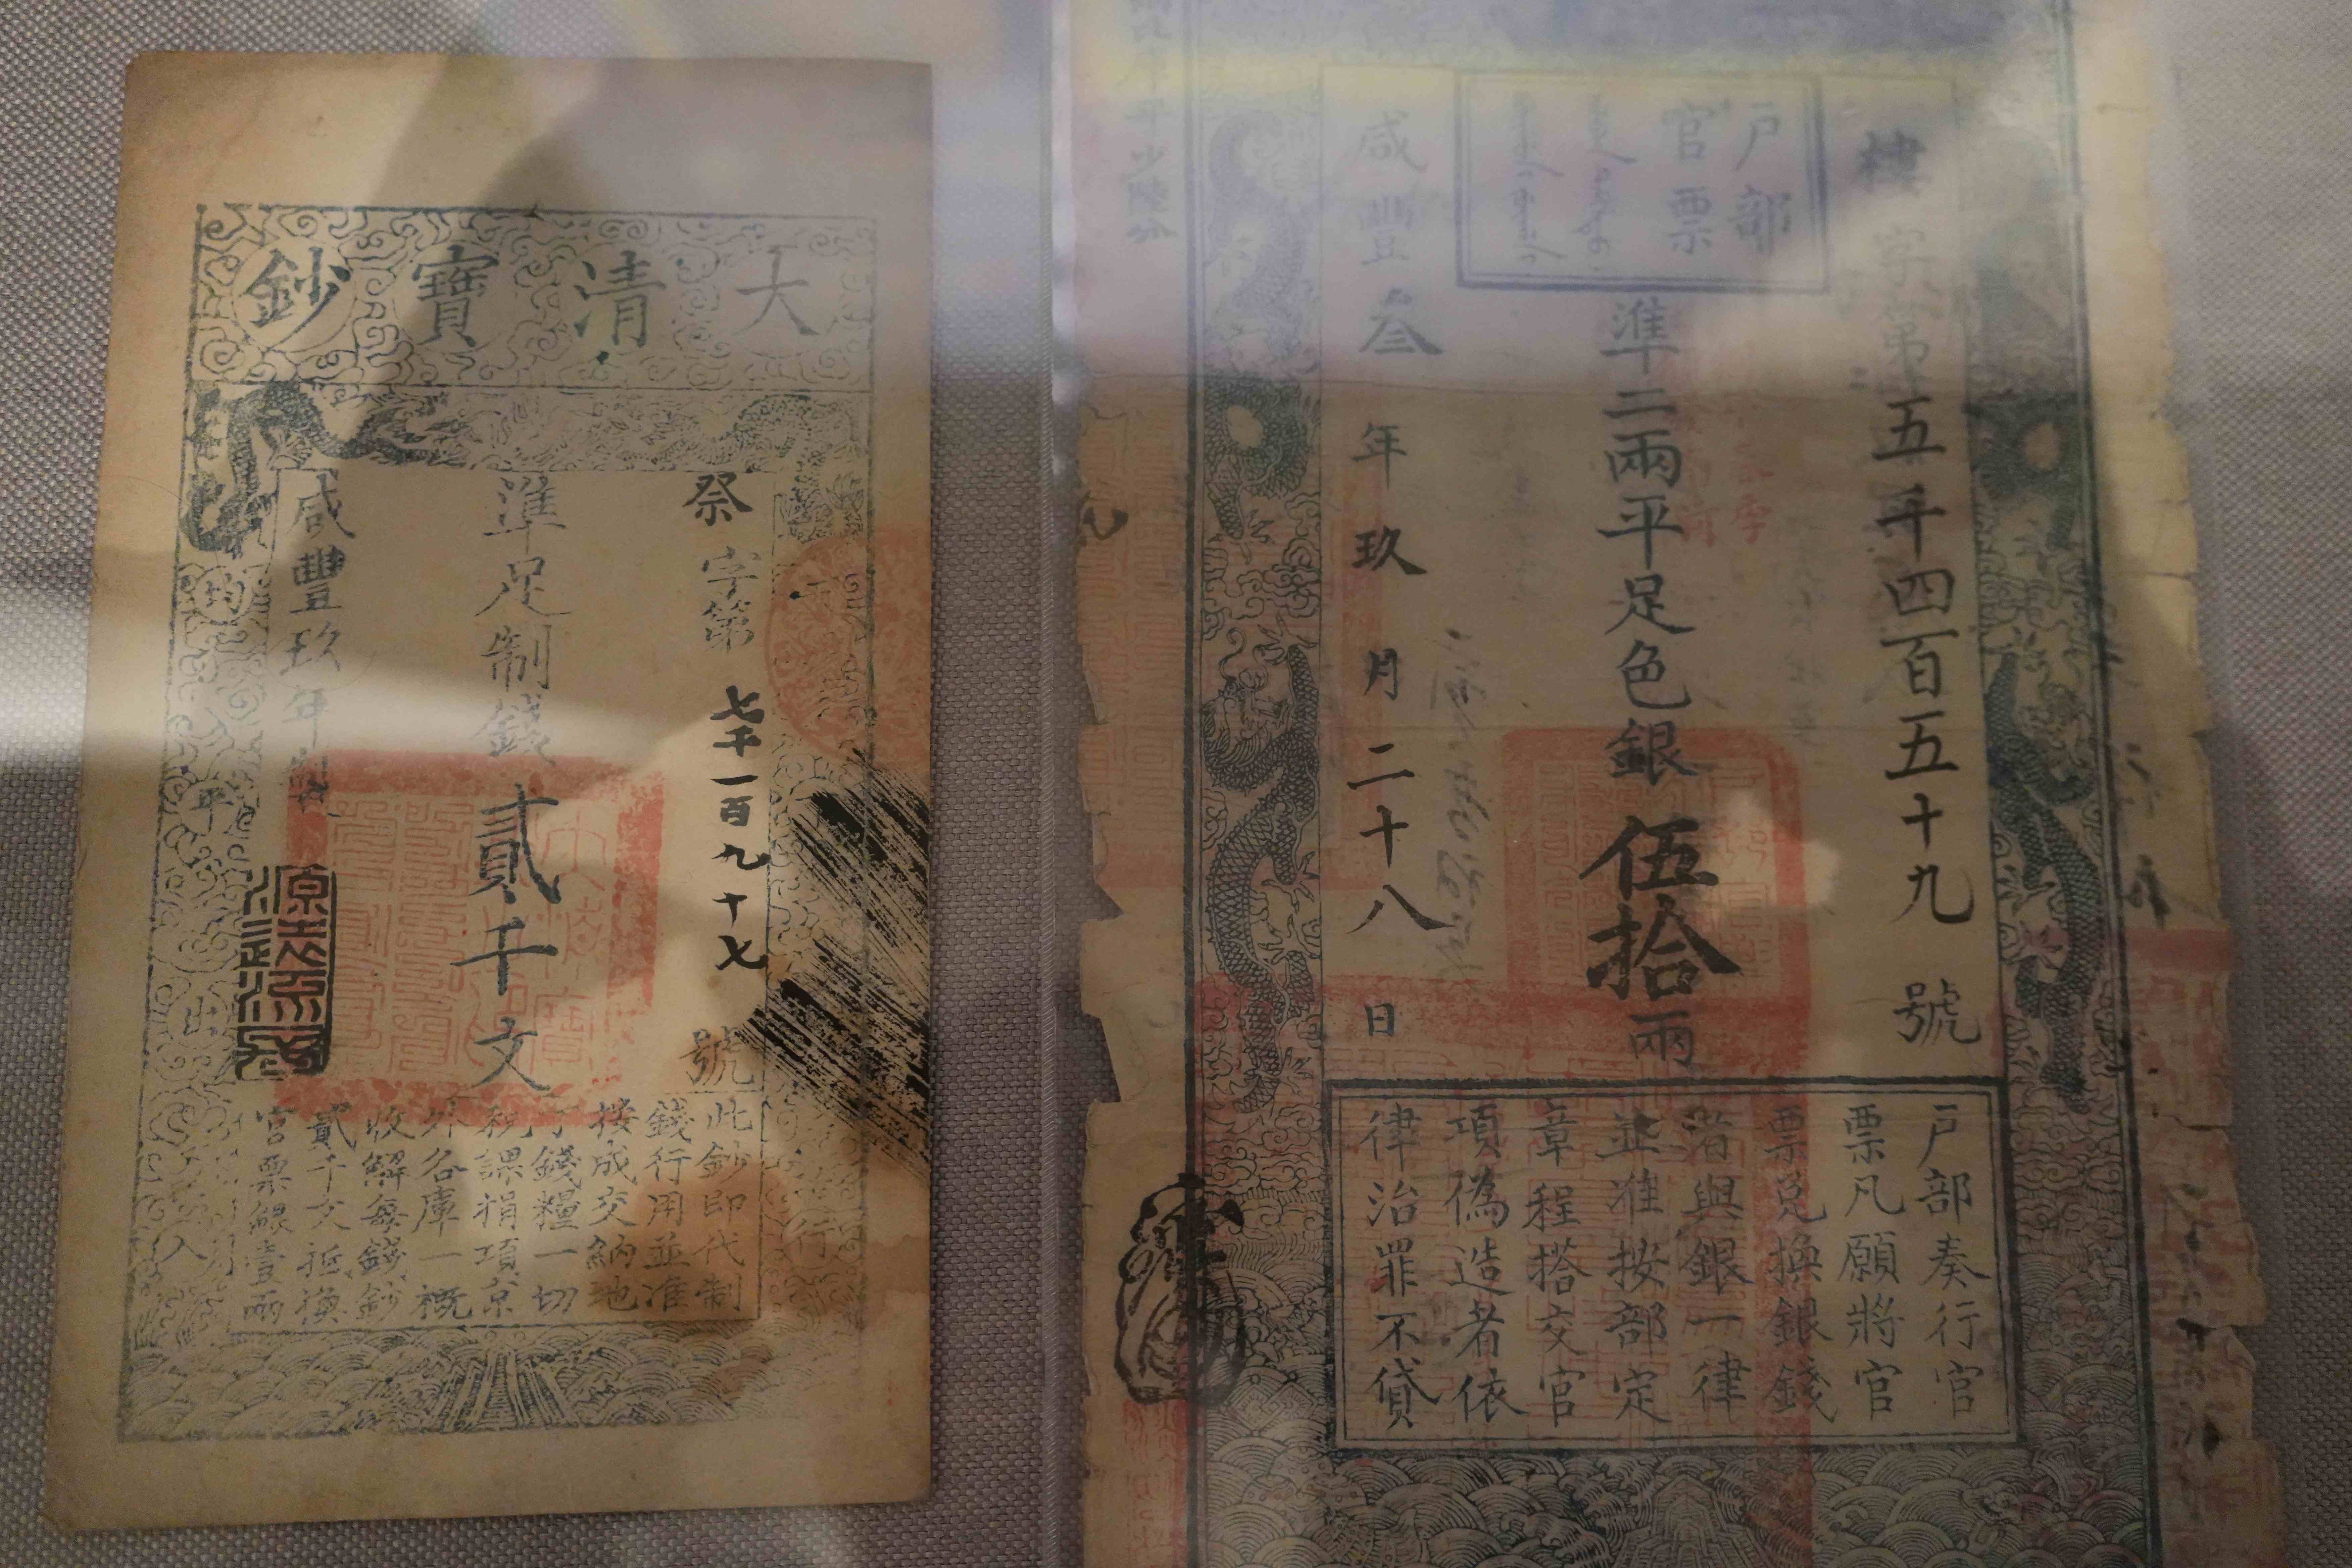 大清寶鈔
祭字第七千一百九十七號
準足制錢貳千文
咸豐玖年
此鈔即代制
錢行用並准
按成交納地
丁錢糧一切
稅課捐項京
外各庫一概
收解每錢鈔
貳千文抵換
官票銀壹兩
戶部
官票
字第五千四百五十九號
準二兩平足色銀伍拾兩
咸豐叁年玖月二十八日
戶部奏行官
票凡願將官
票兌換銀錢
者與銀一律
並准按部定
章程搭交官
項偽造者依
律治罪不貸